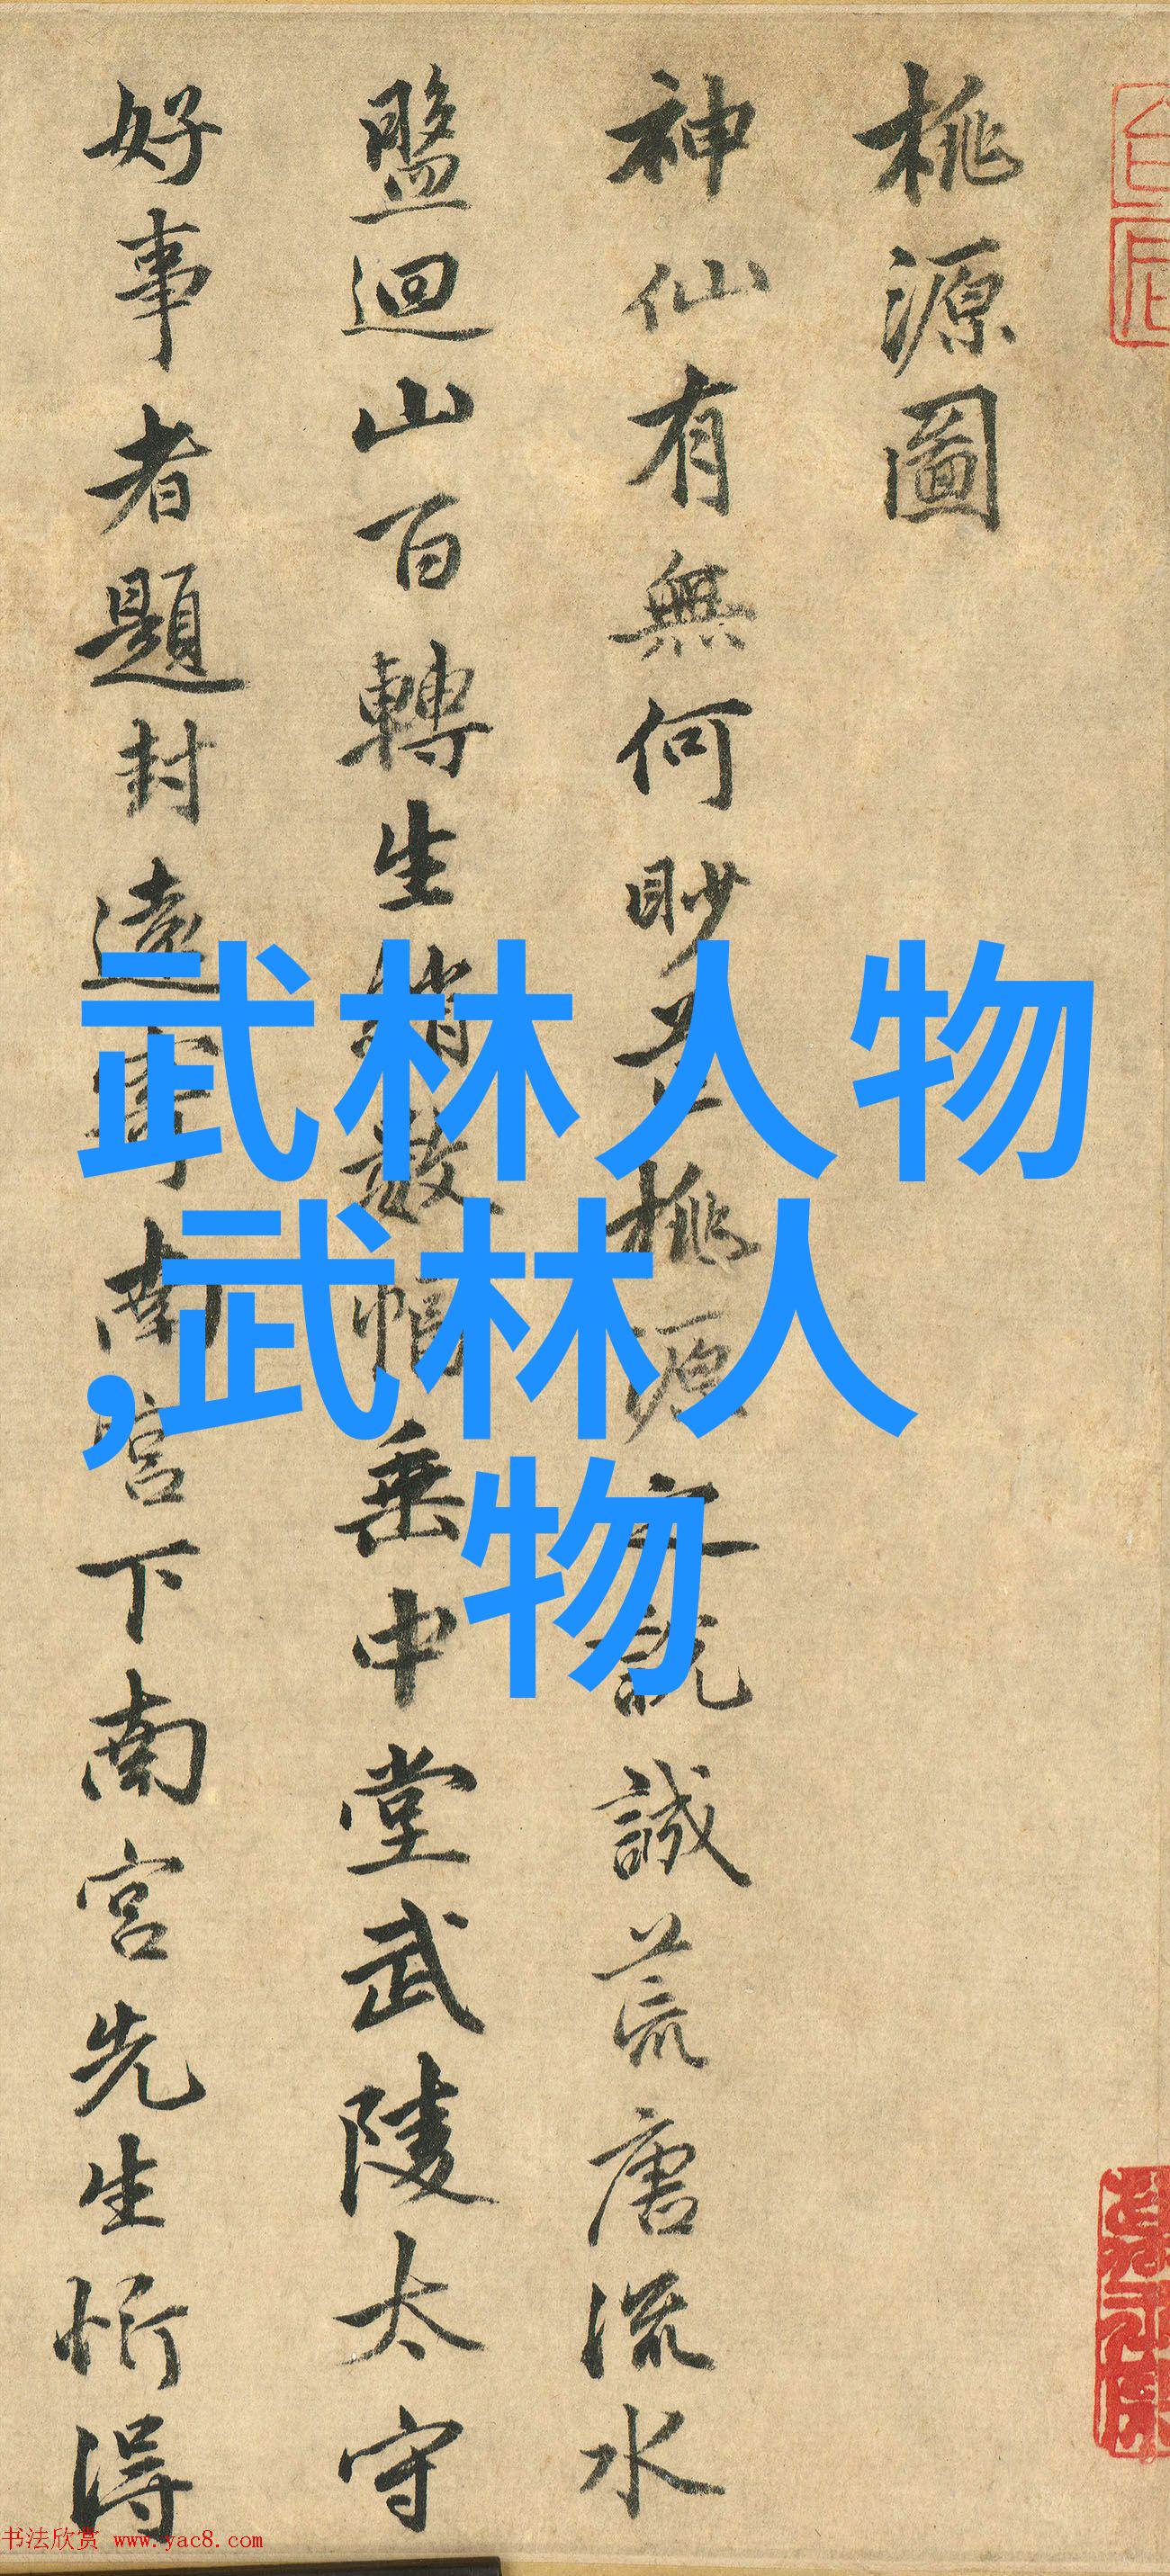 桃源圖
神仙有無何眇芒桃源之說誠荒唐流水
盤迴山百轉生綃數幅垂中堂武陵太守
好事者題封遠寄南宮下南宮先生忻得
武林人物
,武林人
物
书法欣赏 www.yac8.com